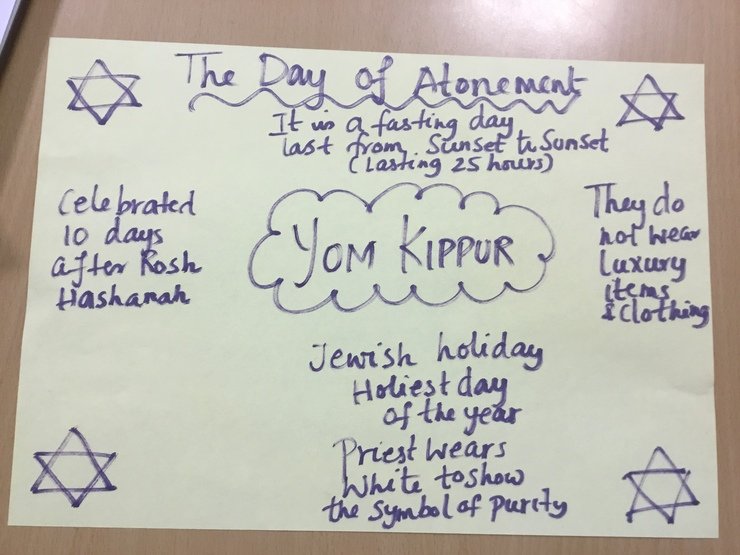 The Day of Atonement
It is a fasting day
last from Sunset to Sunset
(Lasting 25 hours)
Celebrated
10 days
after Rosh
Hashanah
YOM KIPPUR
They do
not wear
luxury
items
& Clothing
Jewish holiday
Holiest day
of the year
Priest wears
White to show
the symbol of purity